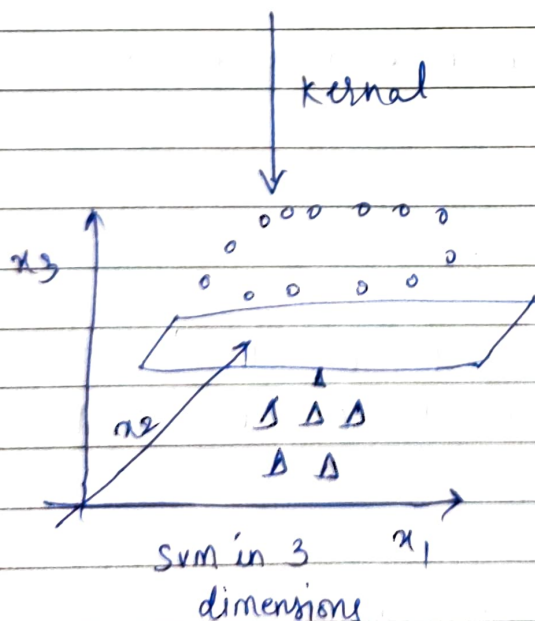 Kernal
x3
x2
x1
SVM in 3
dimensions